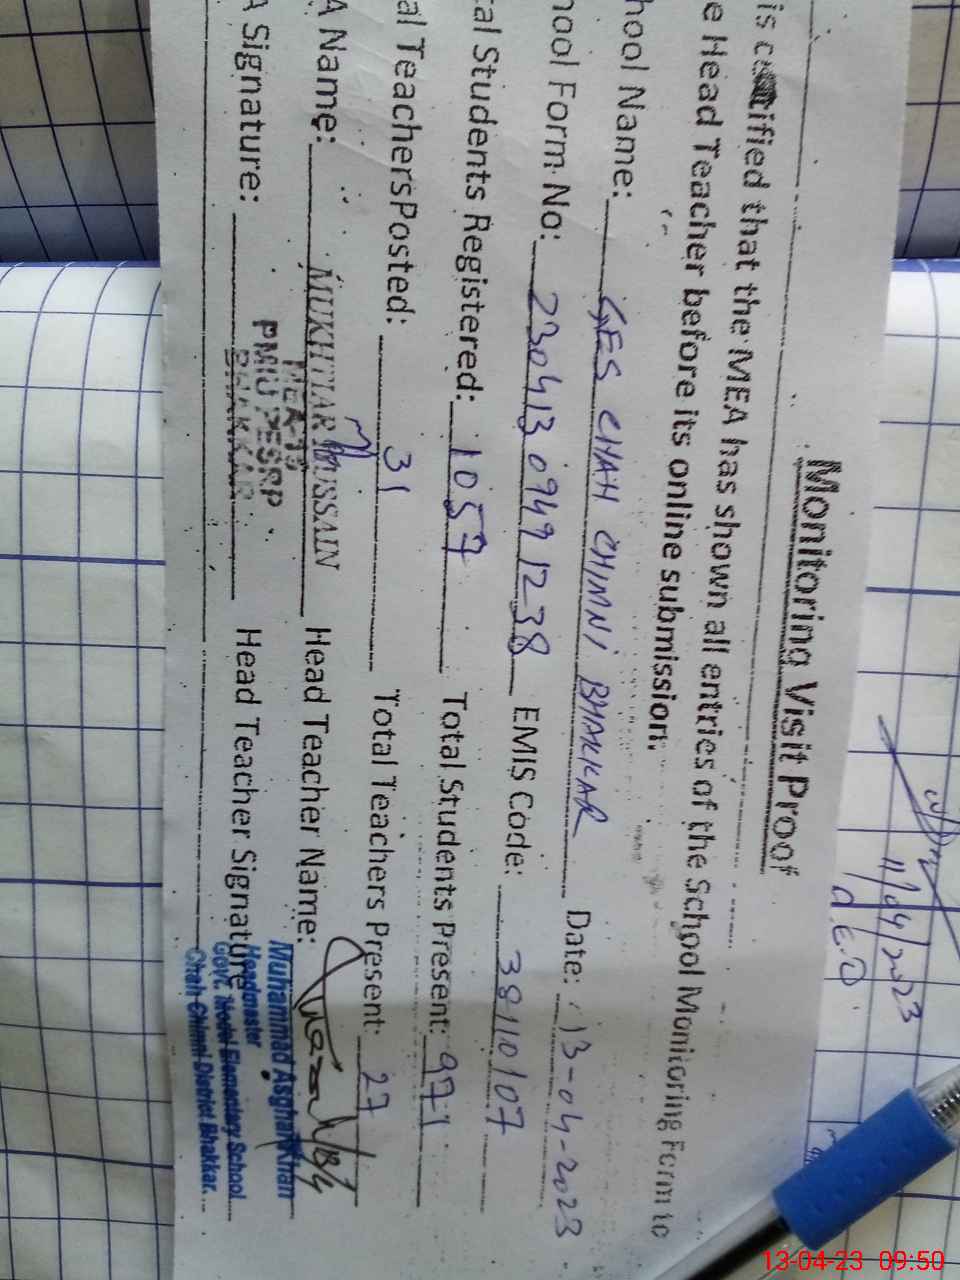 Monitoring Visit Proof
is certified that the MEA has shown all entries of the School Monitoring Form to
e Head Teacher before its online submission.
hool Name: GES CHAH CHIMNI BHAKKAR Date: 13-04-2023
hool Form No: 230413 0949 1238 EMIS Code: 38110107
tal Students Registered: 1057 Total Students Present: 971
al Teachers Posted: 31 Total Teachers Present: 27
A Name: MUKHTIAR HUSSAIN Head Teacher Name:
MEA-13
PMIU PESRP
BHAKKAR
A Signature: Head Teacher Signature
Muhammad Asghar Khan
Headmaster
Govt. Model Elementary School
Chah Chimni District Bhakkar.
11/04/2023
A.E.O
13-04-23 09:50